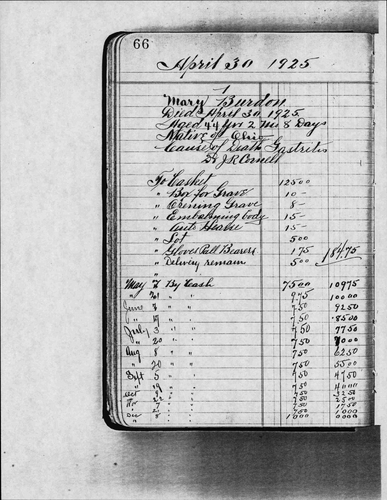 66
April 30 1925
1
Mary Burdon
Died April 30 1925
Aged 44 yrs 2 Mo 8 Days
Native of Ohio
Cause of Death Gastretis
Dr J.R.
To Casket 125 00
" Box for Grave 10 -
" Opening Grave 8 -
" Embalming body 15 -
" Auto Hearse 15 -
" Lot 5 00
" Gloves Pall Bearers 1 75 184.75
" Delivery remain 5 00
"
May By Cash 75 00 109 75
" " 9 75 100 00
June " 7 50 92 50
" " 7 50 85 00
July 3 " 7 50 77 50
" 20 " 7 50 70 00
Aug 8 " 7 50 62 50
" 20 " 7 50 55 00
Sept 5 " 7 50 47 50
" 19 " 7 50 40 00
Oct " 7 50 32 50
" " 7 50 25 00
Nov 7 " 7 50 17 50
" " 7 50 10 00
Dec 8 " 10 00